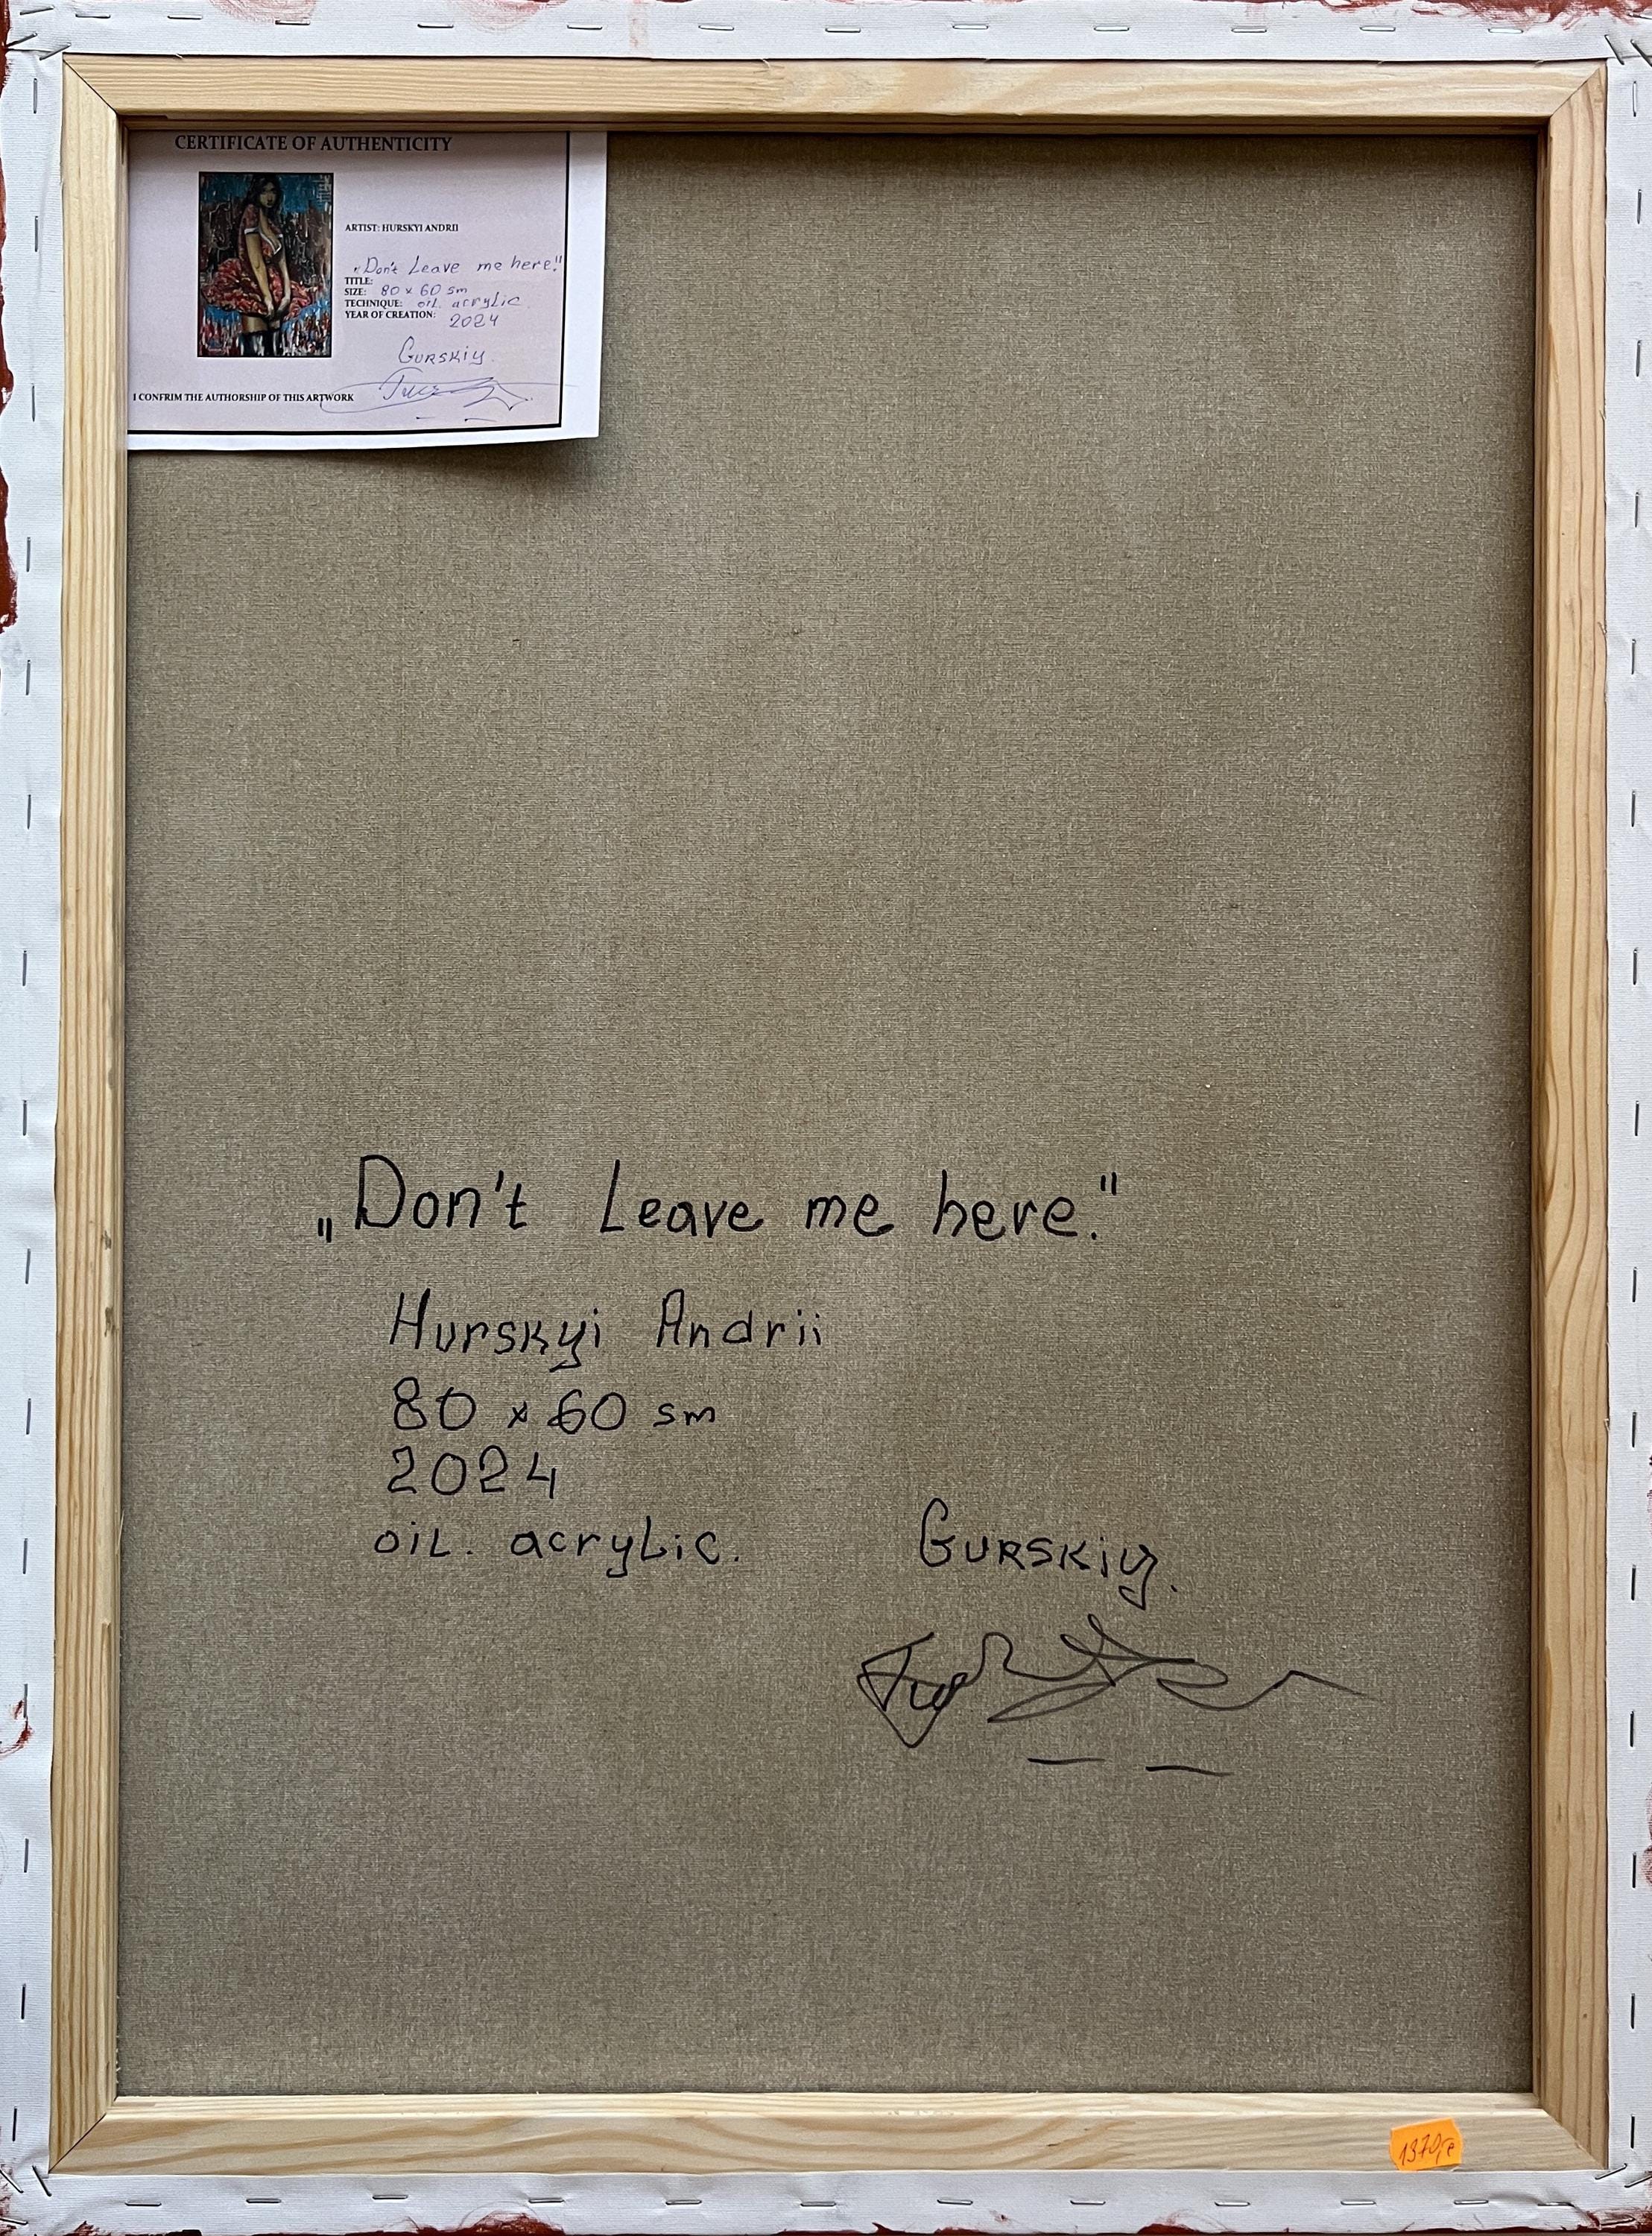 CERTIFICATE OF AUTHENTICITY
ARTIST: HURSKYI ANDRII
„Don't Leave me here."
TITLE:
SIZE: 80 x 60 sm
TECHNIQUE: oil. acrylic.
YEAR OF CREATION: 2024
GURSKiy.
I CONFRIM THE AUTHORSHIP OF THIS ARTWORK
„Don't Leave me here."
Hurskyi Andrii
80 x 60 sm
2024
oiL. acryLic.
GURSKiy.